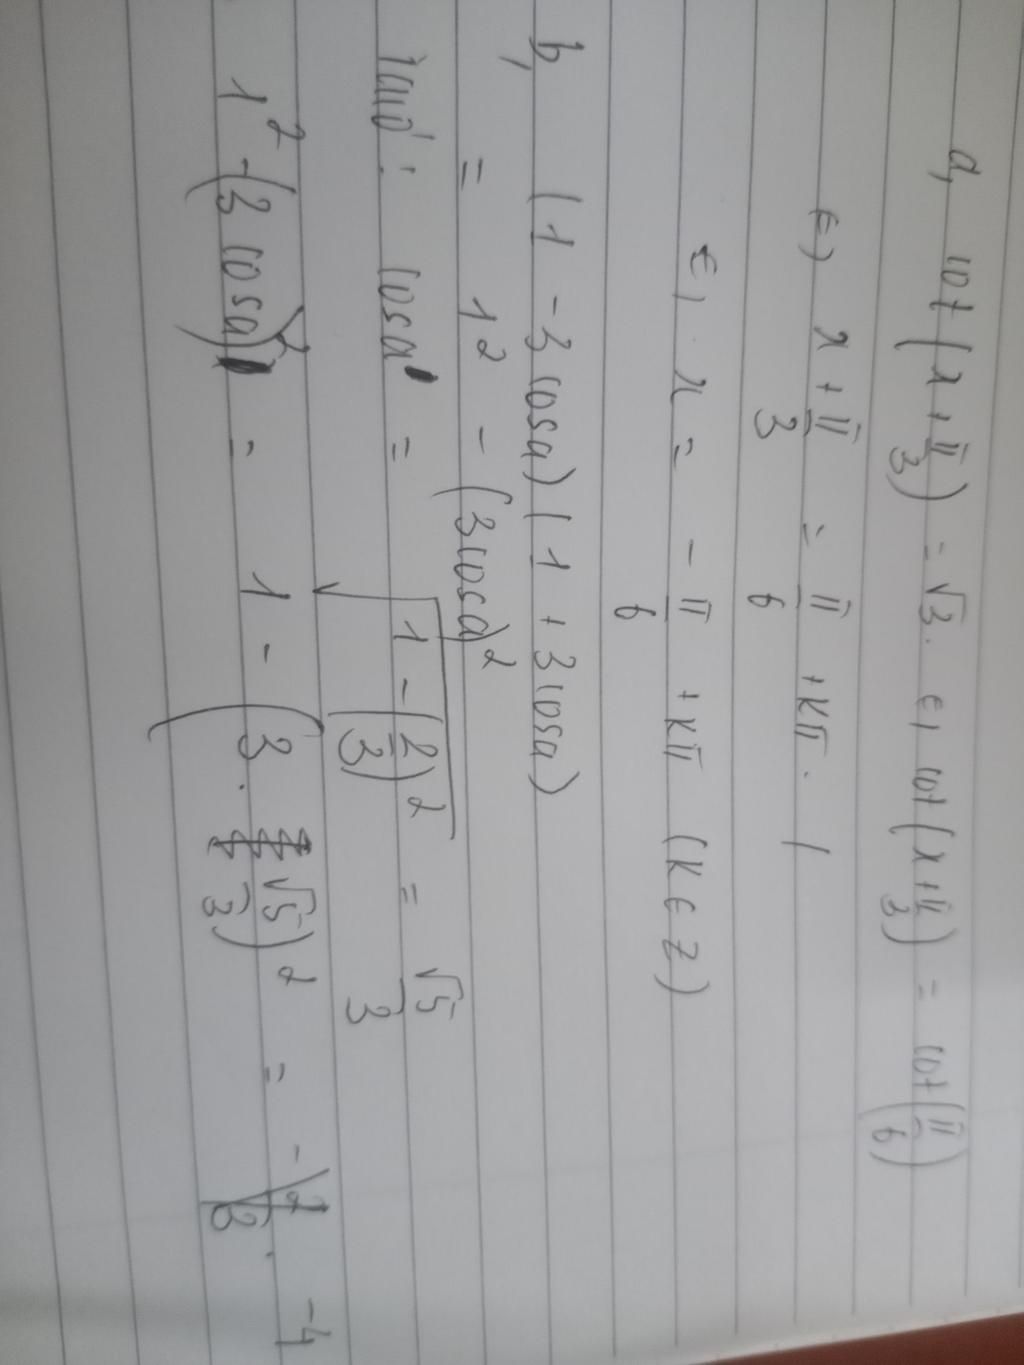 a, cot(x + π/3) = √3. €, cot(x + π/3) = cot(π/6)
€) x + π/3 = π/6 + kπ. /
€, x = - π/6 + kπ (k ∈ Z)
b, (1 - 3cosa)(1 + 3cosa)
= 1² - (3cosa)²
cosa = √(1 - (2/3)²) = √5/3
1² - (3cosa)² = 1 - (3. √5/3)² = -4